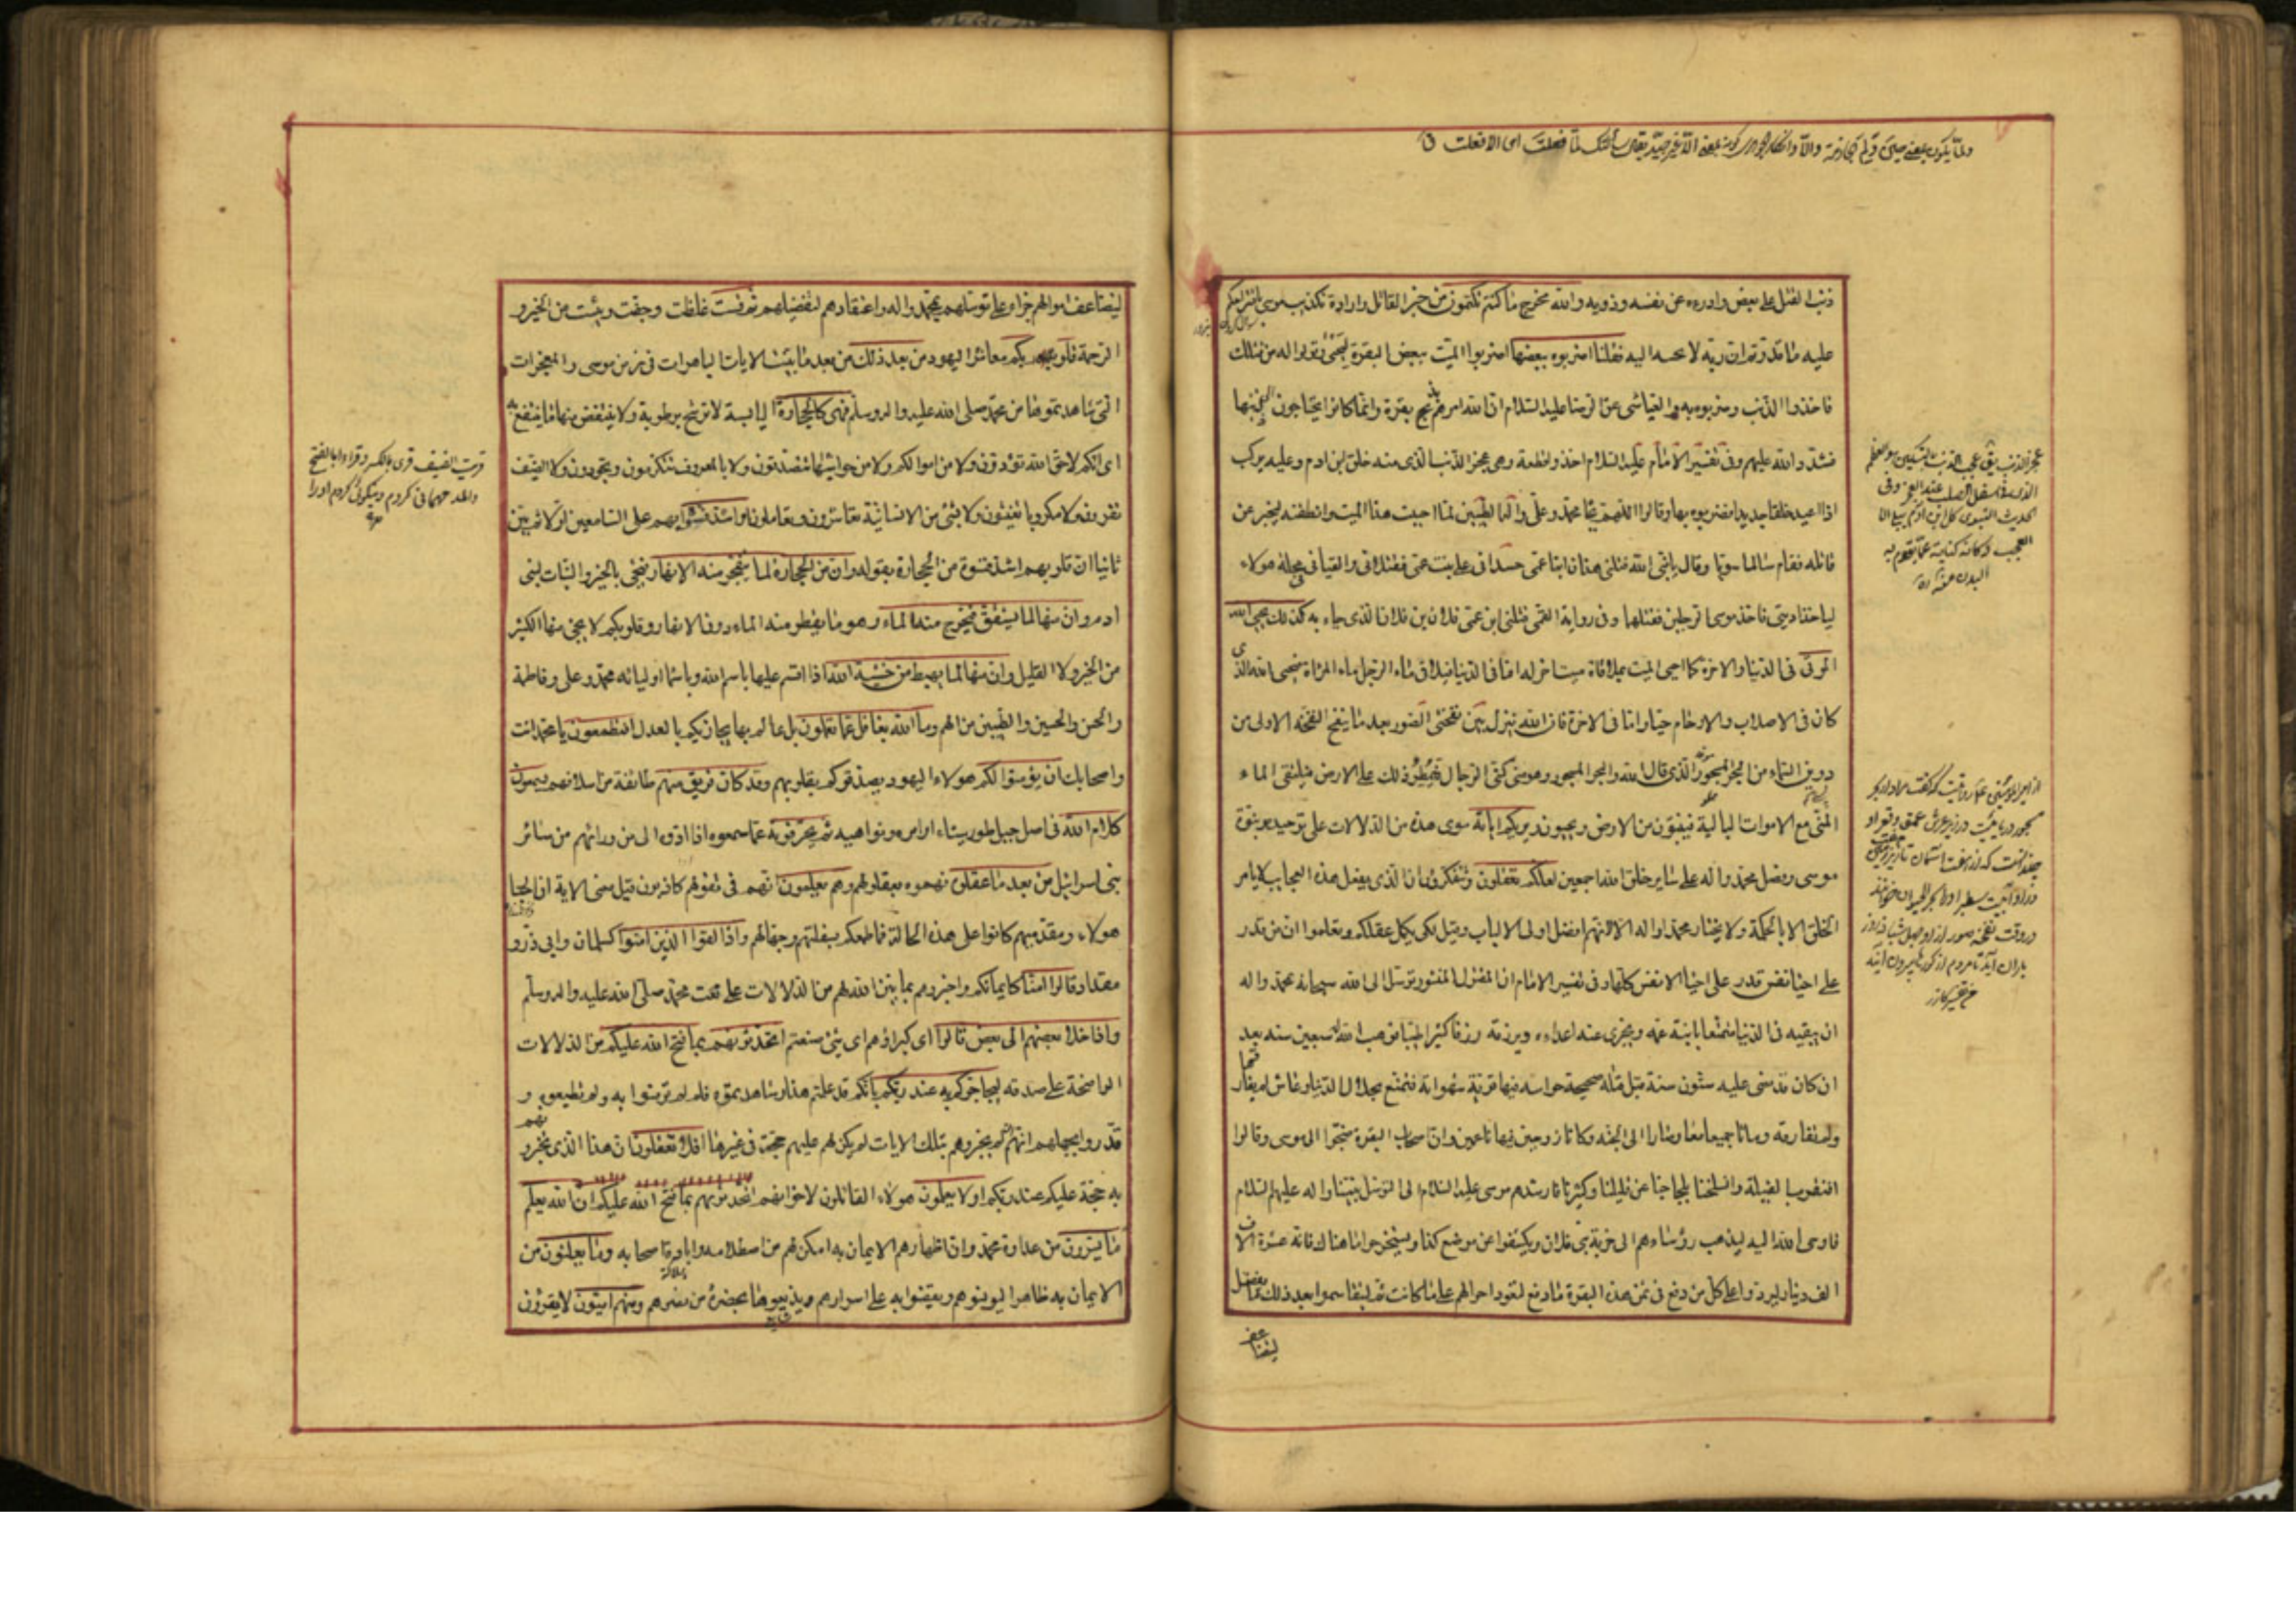 ذنب القتل على بعض وادرءه عن نفسه وذويه والله مخرج ما كنتم تكتمون من خبر القاتل وارادة تكذيب موسى
عليه ما قدرتم ان ربه لا يجيبه اليه فقلنا اضربوه ببعضها اضربوا الميت ببعض البقرة ليحيى وقولوا له من قتلك
فاخذوا الذنب وضربوه به والعياشي عن الرضا عليه السلام ان الله امرهم بذبح بقرة وانما كانوا يحتاجون الى ذنبها
فشدد الله عليهم وفي تفسير الامام عليه السلام اخذوا قطعة وهي عجز الذنب الذي منه خلق ابن ادم وعليه يركب
اذا اعيد خلقا جديدا فضربوه بها وقالوا اللهم بجاه محمد وعلي واله الطيبين لما احييت هذا الميت وانطقته ليخبر عن
قاتله فقام سالما سويا وقال يا نبي الله قتلني هذان ابنا عمي حسداني على بنت عمي فقتلاني والقياني في محلة هؤلاء
لياخذا ديتي فاخذ موسى الرجلين فقتلهما وفي رواية القمي قتلني ابن عمي فلان بن فلان الذي جاء به كذلك يحيي الله
الموتى في الدنيا والاخرة كما احيى الميت بملاقاة ميت اخر له اما في الدنيا فيلاقي ماء الرجل ماء المراة فيحيي الله الذي
كان في الاصلاب والارحام حيا واما في الاخرة فان الله ينزل بين نفختي الصور بعد ما ينفخ النفخة الاولى من
دوين السماء من البحر المسجور الذي قال الله والبحر المسجور وهو مني كمني الرجال فيمطر ذلك على الارض فيلتقي الماء
المني مع الاموات البالية فينبتون من الارض ويحيون ويريكم اياته سوى هذه من الدلالات على توحيده ونبوة
موسى وفضل محمد واله على سائر خلق الله اجمعين لعلكم تعقلون وتتفكرون ان الذي يفعل هذه العجايب لا يامر
الخلق الا بالحكمة ولا يختار محمدا واله الا لانهم افضل اولى الالباب وقيل لكي يكمل عقلكم وتعلموا ان من قدر
على احياء نفس قدر على احياء الانفس كلها وفي تفسير الامام ان المقتول المنشور توسل الى الله سبحانه بمحمد واله
ان يبقيه في الدنيا متمتعا بابنة عمه ويجزي عنه اعداءه ويرزقه رزقا كثيرا طيبا فوهب الله له سبعين سنة بعد
ان كان قد مضى عليه ستون سنة قبل قتله صحيحة حواسه فيها قوية شهواته فتمتع بحلال الدنيا وعاش لم يفارقها
ولم تفارقه وماتا جميعا معا وصارا الى الجنة وكانا زوجين فيها ناعمين وان اصحاب البقرة ضجوا الى موسى وقالوا
افتقرت القبيلة وانسلخنا بلجاجنا عن قليلنا وكثيرنا فارشدهم موسى عليه السلام الى التوسل بنبينا واله عليهم السلام
فاوحى الله اليه ليذهب رؤساءهم الى خربة بني فلان ويكشفوا عن موضع كذا ويستخرجوا ما هناك فانه عشرة الاف
الف دينار ليردوا على كل من دفع في ثمن هذه البقرة ما دفع لتعود احوالهم على ما كانت ثم ليتقاسموا بعد ذلك ما يفضل
ليضاعف
عجز الذنب
الذي في اسفل الصلب عند العجز وفي
الحديث النبوي كل ابن ادم يبلى الا
العجب وكانه كناية عما يقوم به
البدن
ليضاعف اموالهم جزاء على توسلهم بمحمد واله واعتقادهم لتفضيلهم ثم قست غلظت وجفت ويبست من الخير و
الرحمة قلوبكم معاشر اليهود من بعد ذلك من بعد ما تبينت الايات الباهرات في زمن موسى والمعجزات
التي شاهدتموها من محمد صلى الله عليه واله وسلم فهي كالحجارة اليابسة لا ترشح برطوبة ولا ينتفض منها ما ينتفع به
اي انكم لا حق الله تؤدون ولا من اموالكم ولا من حواشيها تتصدقون ولا بالمعروف تتكرمون وتجودون ولا الضيف
تقرون ولا مكروبا تغيثون ولا بشئ من الانسانية تعاشرون وتعاملون او اشد قسوة ابهم على السامعين اولا ثم بين
ثانيا ان قلوبهم اشد قسوة من الحجارة بقوله وان من الحجارة لما يتفجر منه الانهار فيجئ بالخير والنبات لبني
ادم وان منها لما يشقق فيخرج منه الماء وهو ما يقطر منه الماء دون الانهار وقلوبكم لا يجئ منها الكثير
من الخير ولا القليل وان منها لما يهبط من خشية الله اذا اقسم عليها باسم الله وباسماء اوليائه محمد وعلي وفاطمة
والحسن والحسين والطيبين من الهم وما الله بغافل عما تعملون بل عالم بها يجازيكم بالعدل افتطمعون يا محمد انت
واصحابك ان يؤمنوا لكم هؤلاء اليهود يصدقوكم بقلوبهم وقد كان فريق منهم طائفة من اسلافهم يسمعون
كلام الله في اصل جبل طور سيناء اوامره ونواهيه ثم يحرفونه عما سمعوه اذا ادوه الى من ورائهم من سائر
بني اسرائيل من بعد ما عقلوه فهموه بعقولهم وهم يعلمون انهم في تقولهم كاذبون قيل معنى الاية ان احبار
هؤلاء ومقدميهم كانوا على هذه الحالة فما طمعكم بسفلتهم وجهالهم واذا لقوا الذين امنوا كسلمان وابي ذر و
مقداد قالوا امنا كايمانكم واخبروهم بما بين الله لهم من الدلالات على نعت محمد صلى الله عليه واله وسلم
واذا خلا بعضهم الى بعض قالوا اي كبراؤهم اي شئ صنعتم اتحدثونهم بما فتح الله عليكم من الدلالات
الواضحة على صدقه ليحاجوكم به عند ربكم بانكم قد علمتم هذا وشاهدتموه فلم لم تؤمنوا به ولم تطيعوه و
قدروا بجهلهم انهم ان لم يخبروهم بتلك الايات لم يكن لهم عليهم حجة في غيرها افلا تعقلون ان هذا الذي تخبرونهم
به حجة عليكم عند ربكم اولا يعلمون هؤلاء القائلون لاخوانهم اتحدثونهم بما فتح الله عليكم ان الله يعلم
ما يسرون من عداوة محمد وان اظهارهم الايمان به امكن لهم من اصطلامه وابادة اصحابه وما يعلنون من
الايمان به ظاهرا ليونسوهم ويقفوا به على اسرارهم ويذيعوها بحضرة من يضرهم ومنهم اميون لا يقرؤن
قريت الضيف قرى بالكسر وقراء بالفتح